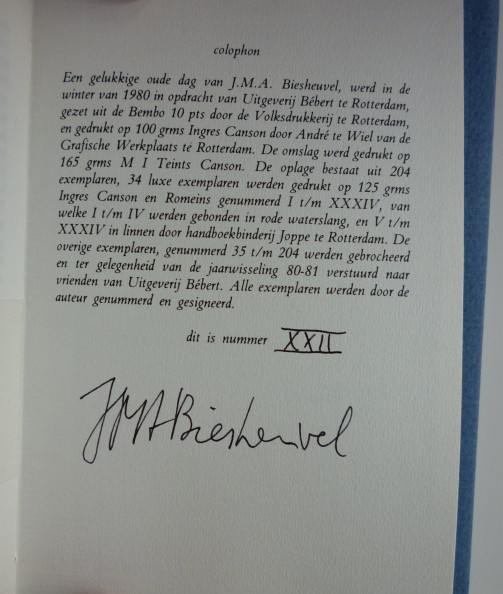 colophon
Een gelukkige oude dag van J.M.A. Biesheuvel, werd in de
winter van 1980 in opdracht van Uitgeverij Bébert te Rotterdam,
gezet uit de Bembo 10 pts door de Volksdrukkerij te Rotterdam,
en gedrukt op 100 grms Ingres Canson door André te Wiel van de
Grafische Werkplaats te Rotterdam. De omslag werd gedrukt op
165 grms M I Teints Canson. De oplage bestaat uit 204
exemplaren, 34 luxe exemplaren werden gedrukt op 125 grms
Ingres Canson en Romeins genummerd I t/m XXXIV, van
welke I t/m IV werden gebonden in rode waterslang, en V t/m
XXXIV in linnen door handboekbinderij Joppe te Rotterdam. De
overige exemplaren, genummerd 35 t/m 204 werden gebrocheerd
en ter gelegenheid van de jaarwisseling 80-81 verstuurd naar
vrienden van Uitgeverij Bébert. Alle exemplaren werden door de
auteur genummerd en gesigneerd.
dit is nummer XXII
JMA Biesheuvel